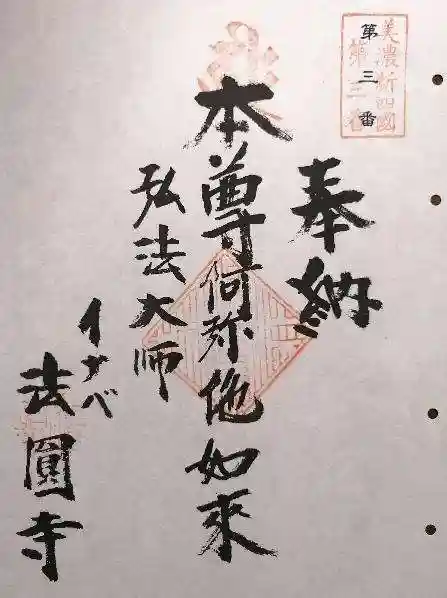 美濃新四國
第三番
第三番
奉納
本尊阿弥陀如來
弘法大师
イナベ
法圓寺